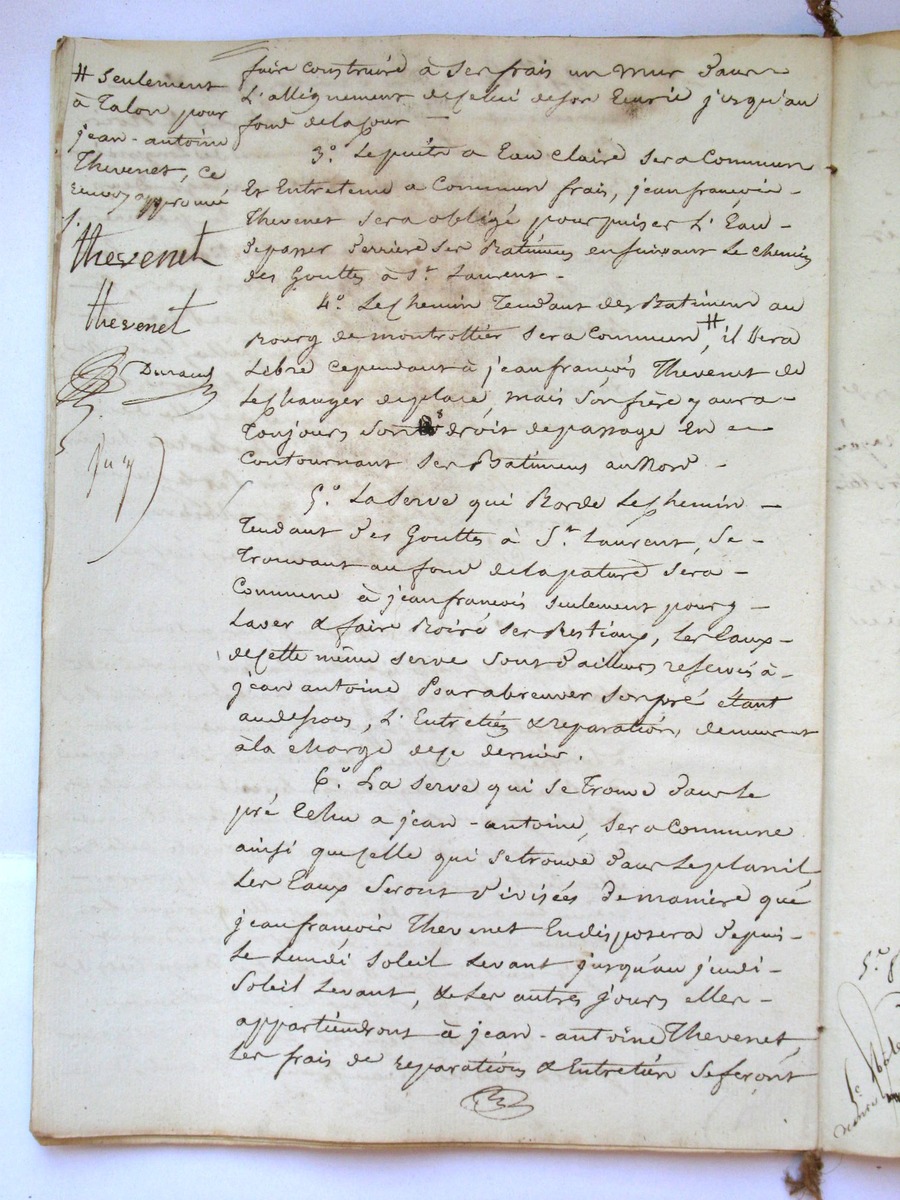 # Seulement
à Talon pour
jean-antoine
Thevenet, ce
renvoy approuvé
Thevenet
Thevenet
faire construire à ses frais un mur dans
L'allignement de celui de son Ecurie jusqu'au
fond de la Cour —
3.° Le puits a Eau claire sera Commun
Et Entretenu a Commun frais, jean françois —
Thevenet sera obligé pour puiser L'Eau —
de passer derrière ses Batimens en suivant Le chemin
des Gouttes à St. Laurent. —
4.° Le chemin Tendant des Batimens au
Bourg de montrottier sera Commun #, il sera
Libre cependant à jean françois Thevenet de
Le changer de place, mais son frère y aura —
Toujours son droit de passage En —
Contournant ses Batimens au Nord. —
5.° La serve qui Borde Le chemin —
Tendant des Gouttes à St. Laurent, se —
Trouvant au fond de la pature sera —
Commune à jean françois seulement pour y —
Laver & faire Boire ses Bestiaux, Les Eaux —
de cette même serve sont d'ailleurs reservés à —
jean antoine Pour abreuver son pré étant
au dessous, L'Entretien & reparations demeurent
à la charge de ce dernier.
6.° La serve qui se trouve dans le
pré Echu a jean-antoine, sera Commune
ainsi que celle qui se trouve dans Le planil,
Les Eaux seront divisées de manière que
jean françois Thevenet En disposera depuis —
Le Lundi soleil Levant jusqu'au jeudi —
Soleil Levant, & Les autres jours elles —
appartiendront à jean-antoine Thevenet,
Les frais de reparations & Entretien se feront